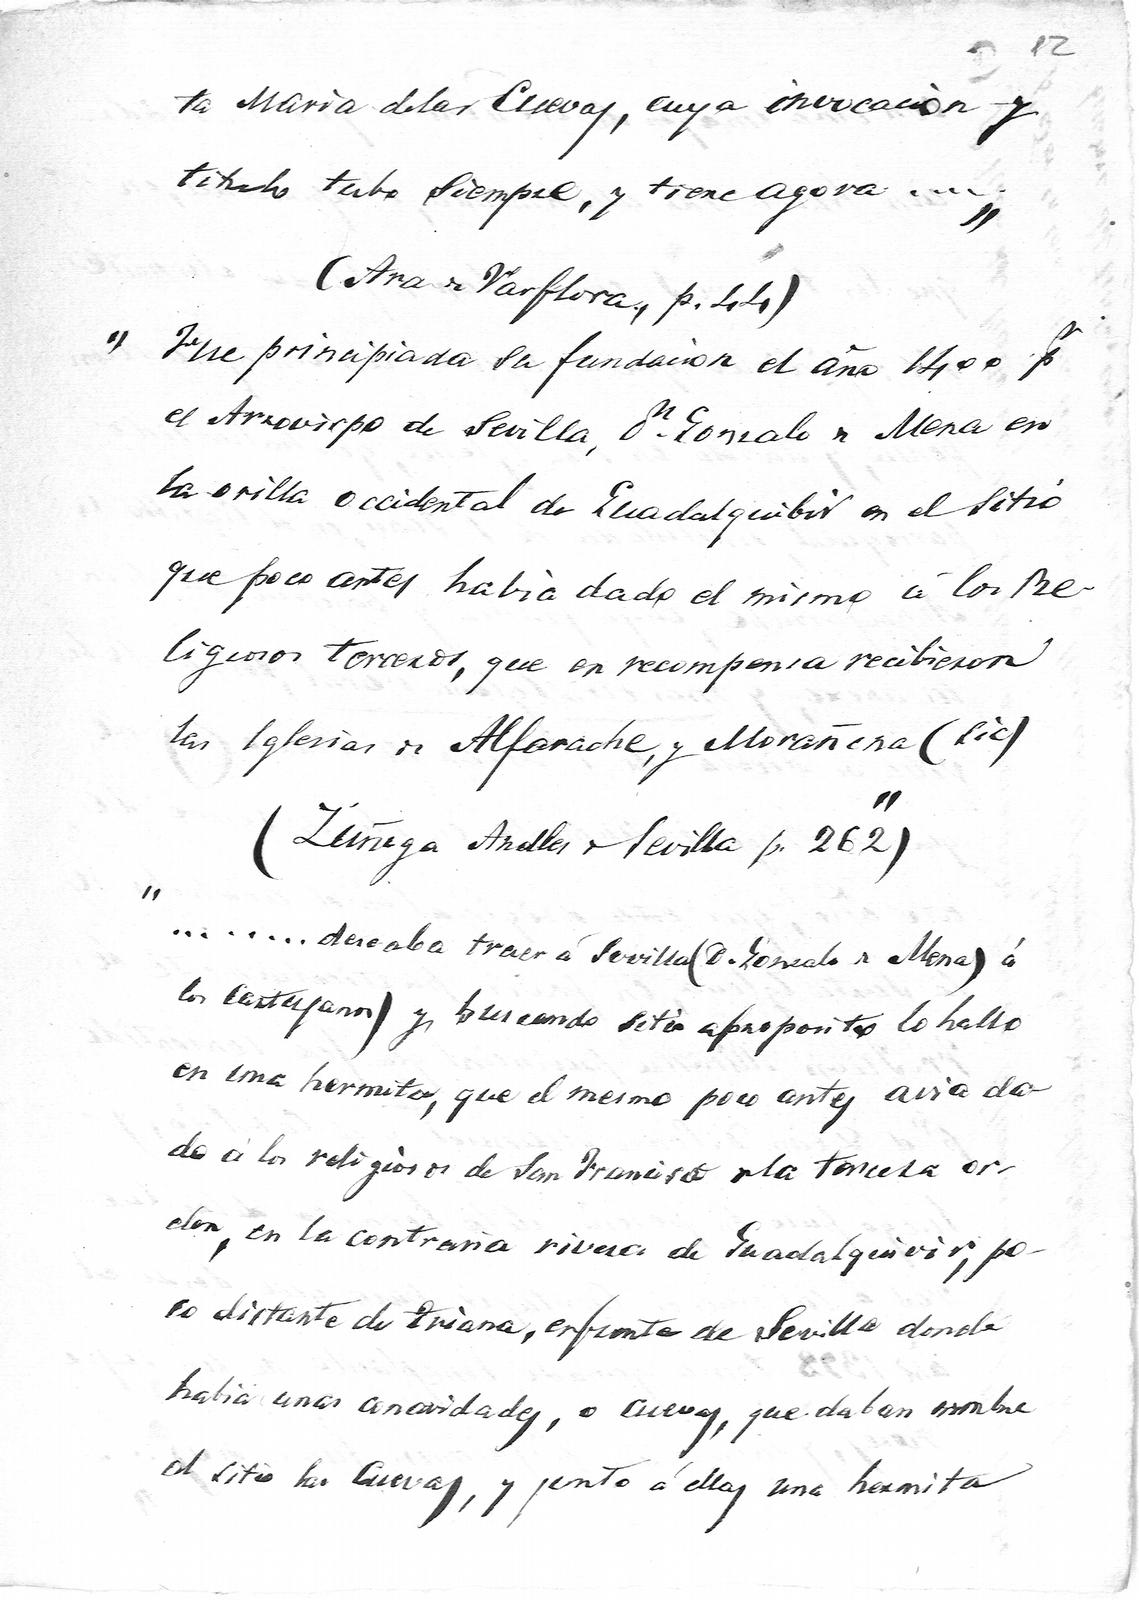 12
ta Maria delas Cuevas, cuya invocacion y
titulo tubo siempre, y tiene agora .....
"
(Arana de Varflora., p. 44)
" Fue principiada su fundacion el año 1400 pr
el Arzovispo de Sevilla, Dn. Gonzalo de Mena en
la orilla occidental de Guadalquibir en el sitio
que poco antes habia dado el mismo á los Re-
ligiosos terceros, que en recompensa recibieron
las Iglesias de Alfarache, y Morañena (sic)
"
(Zúñiga Analles de Sevilla p. 262)
"
......... deseaba traer á Sevilla (D. Gonzalo de Mena) á
los Cartujanos) y buscando sitio aproposito lo hallo
en una hermita, que el mesmo poco antes avia da-
do á los religiosos de San Francisco de la tercera or-
den, en la contraria rivera de Guadalquivir, po-
co distante de Triana, enfrente de Sevilla donde
habia unas concavidades, o cuevas, que daban nombre
al sitio las Cuevas, y junto á ellas una hermita